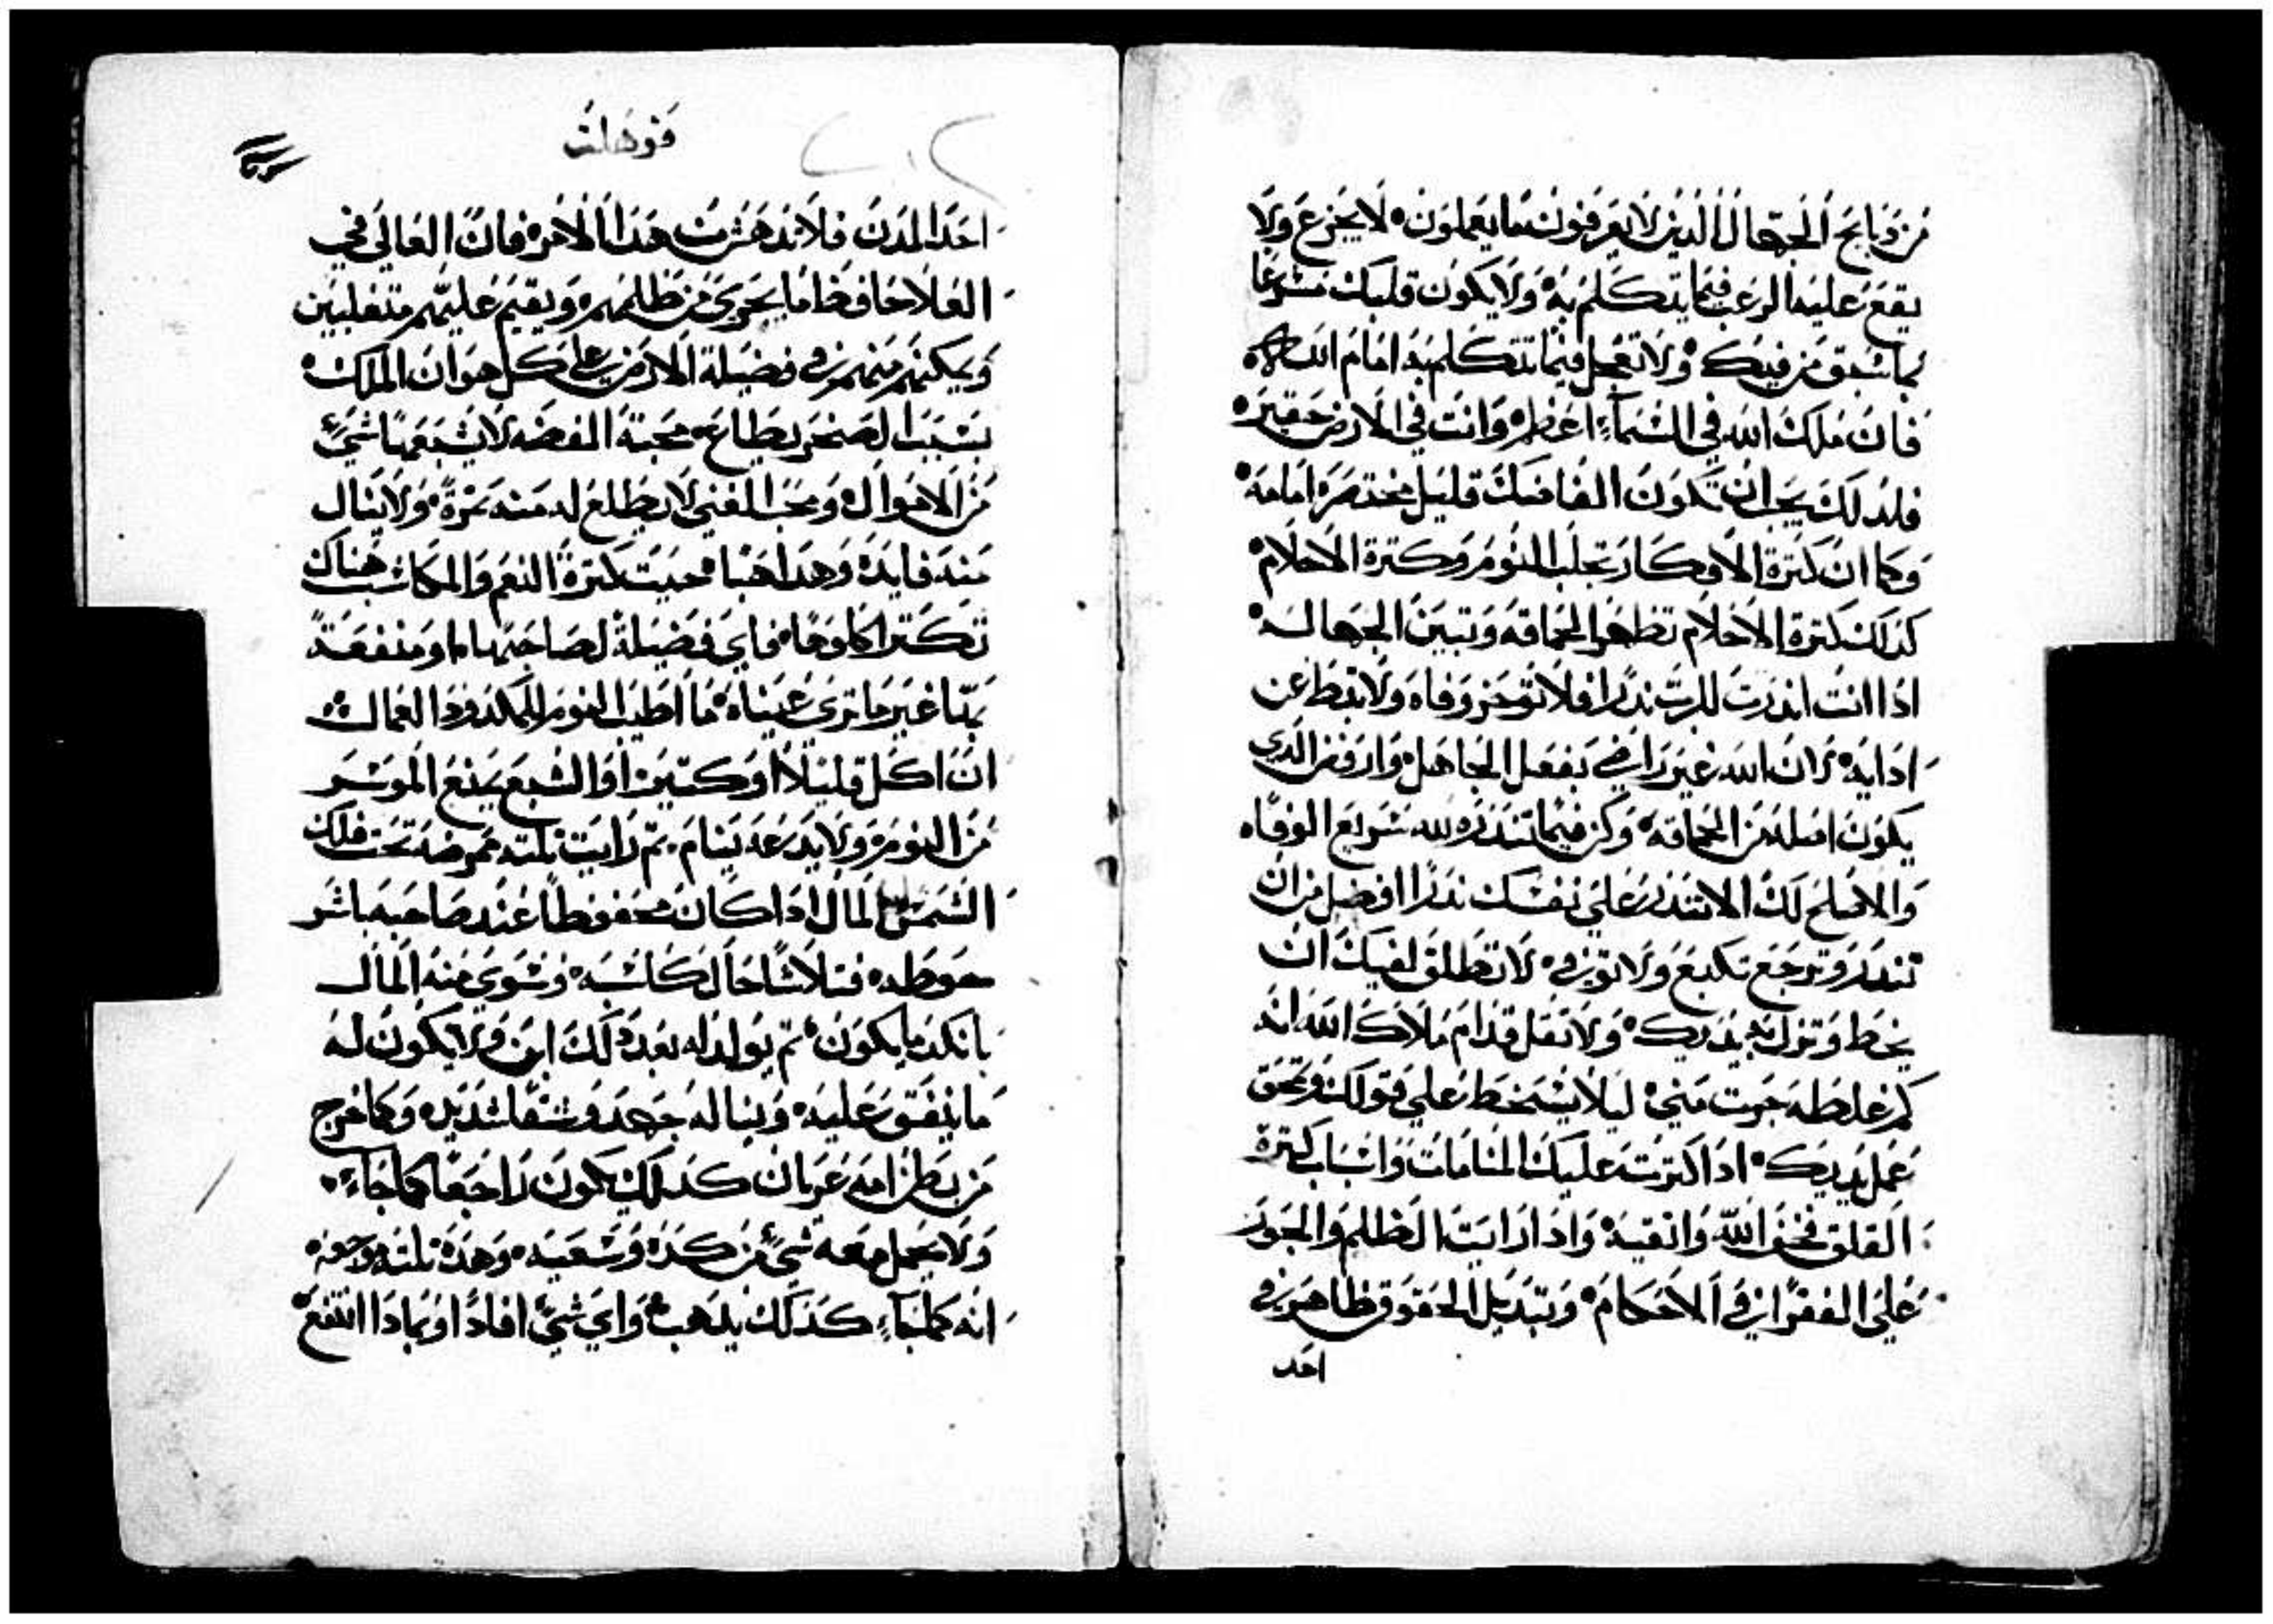 من دبايح الجهال الذين لا يعرفون ما يعملون لا يجزع ولا
يقع عليه الرعب فيما يتكلم به ولا يكون قلبك مسرعا
بما سبق من فيك ولا تعجل فيما تتكلم به امام الله
فان ملك الله في السماء اعظم وانت في الارض حقير
فلذلك يجب ان تكون الفاضك قليل مختصره امامه
وكما ان كترة الاوكار تجلب النوم وكترة الاحلام
كذلك كترة الاحلام تظهر الحماقه وتبين الجهاله
ادا انت اندرت للرب ندرا فلا توخر وفاه ولا تبط عن
ادايه لان الله غير راضي بفعل الجاهل وارفض الدي
يكون اصله من الحماقه وكن فيما تندره لله سريع الوفاه
والاصلح لك الا تندر علي نفسك ندرا افضل من ان
تندر وترجع تكدبع ولا توفي لا تطلق لفيك ان
يخط وتزل به بدنك ولا تقل قدام ملاك الله انه
كم غلطه جرت مني ليلا يسخط علي قولك وتمحق
عمل يديك ادا كترت عليك المنامات واسباب كترة
القلق فخف الله واتقيه وادا رايت الظلم والجور
علي الفقرا في الاحكام وتبديل الحقوق ظاهر في
احد
احد المدن فلا تدهش من هدا الامر فان العالي في
العلا حافظا ما يجري من ظلمهم ويقيم عليهم متغلبين
ويمكنهم منهم في فضيلة الارض علي كل هوان الملك
بسبب الصخر يطاع محبة الفضه لا يشبعها شيء
من الاموال ومحب الغني لا يطلع له منه تمرة ولا ينال
منه فايده وهدا هبا حيت كترة النعم والمكاسب هناك
تكتر اكلوها فاي فضيلة لصاحبها او منفعة
بها غير ما تري عيناه ما اطيب النوم للمكدود العمال
ان اكل قليلا او كتير او الشبع يمنع الموسر
من النوم ولا يدعه ينام تم رايت بلته ممرضه تحت فلك
الشمس المال ادا كان محفوظا عند صاحبه باشر
حوطه فتلاشا حال كاسبه وسوي منه المال
بانكد ما يكون تم يولد له بعد دلك ابن ولا يكون له
ما ينفق عليه وينا له جهد وشقا شديد وكما خرج
من بطن امه عريان كدلك يكون راجعا كما جاء
ولا يحمل معه شيء من كده وسعيه وهده بلته موجعه
انه كما جاء كدلك يدهب واي شيء افاد او بمادا انتفع